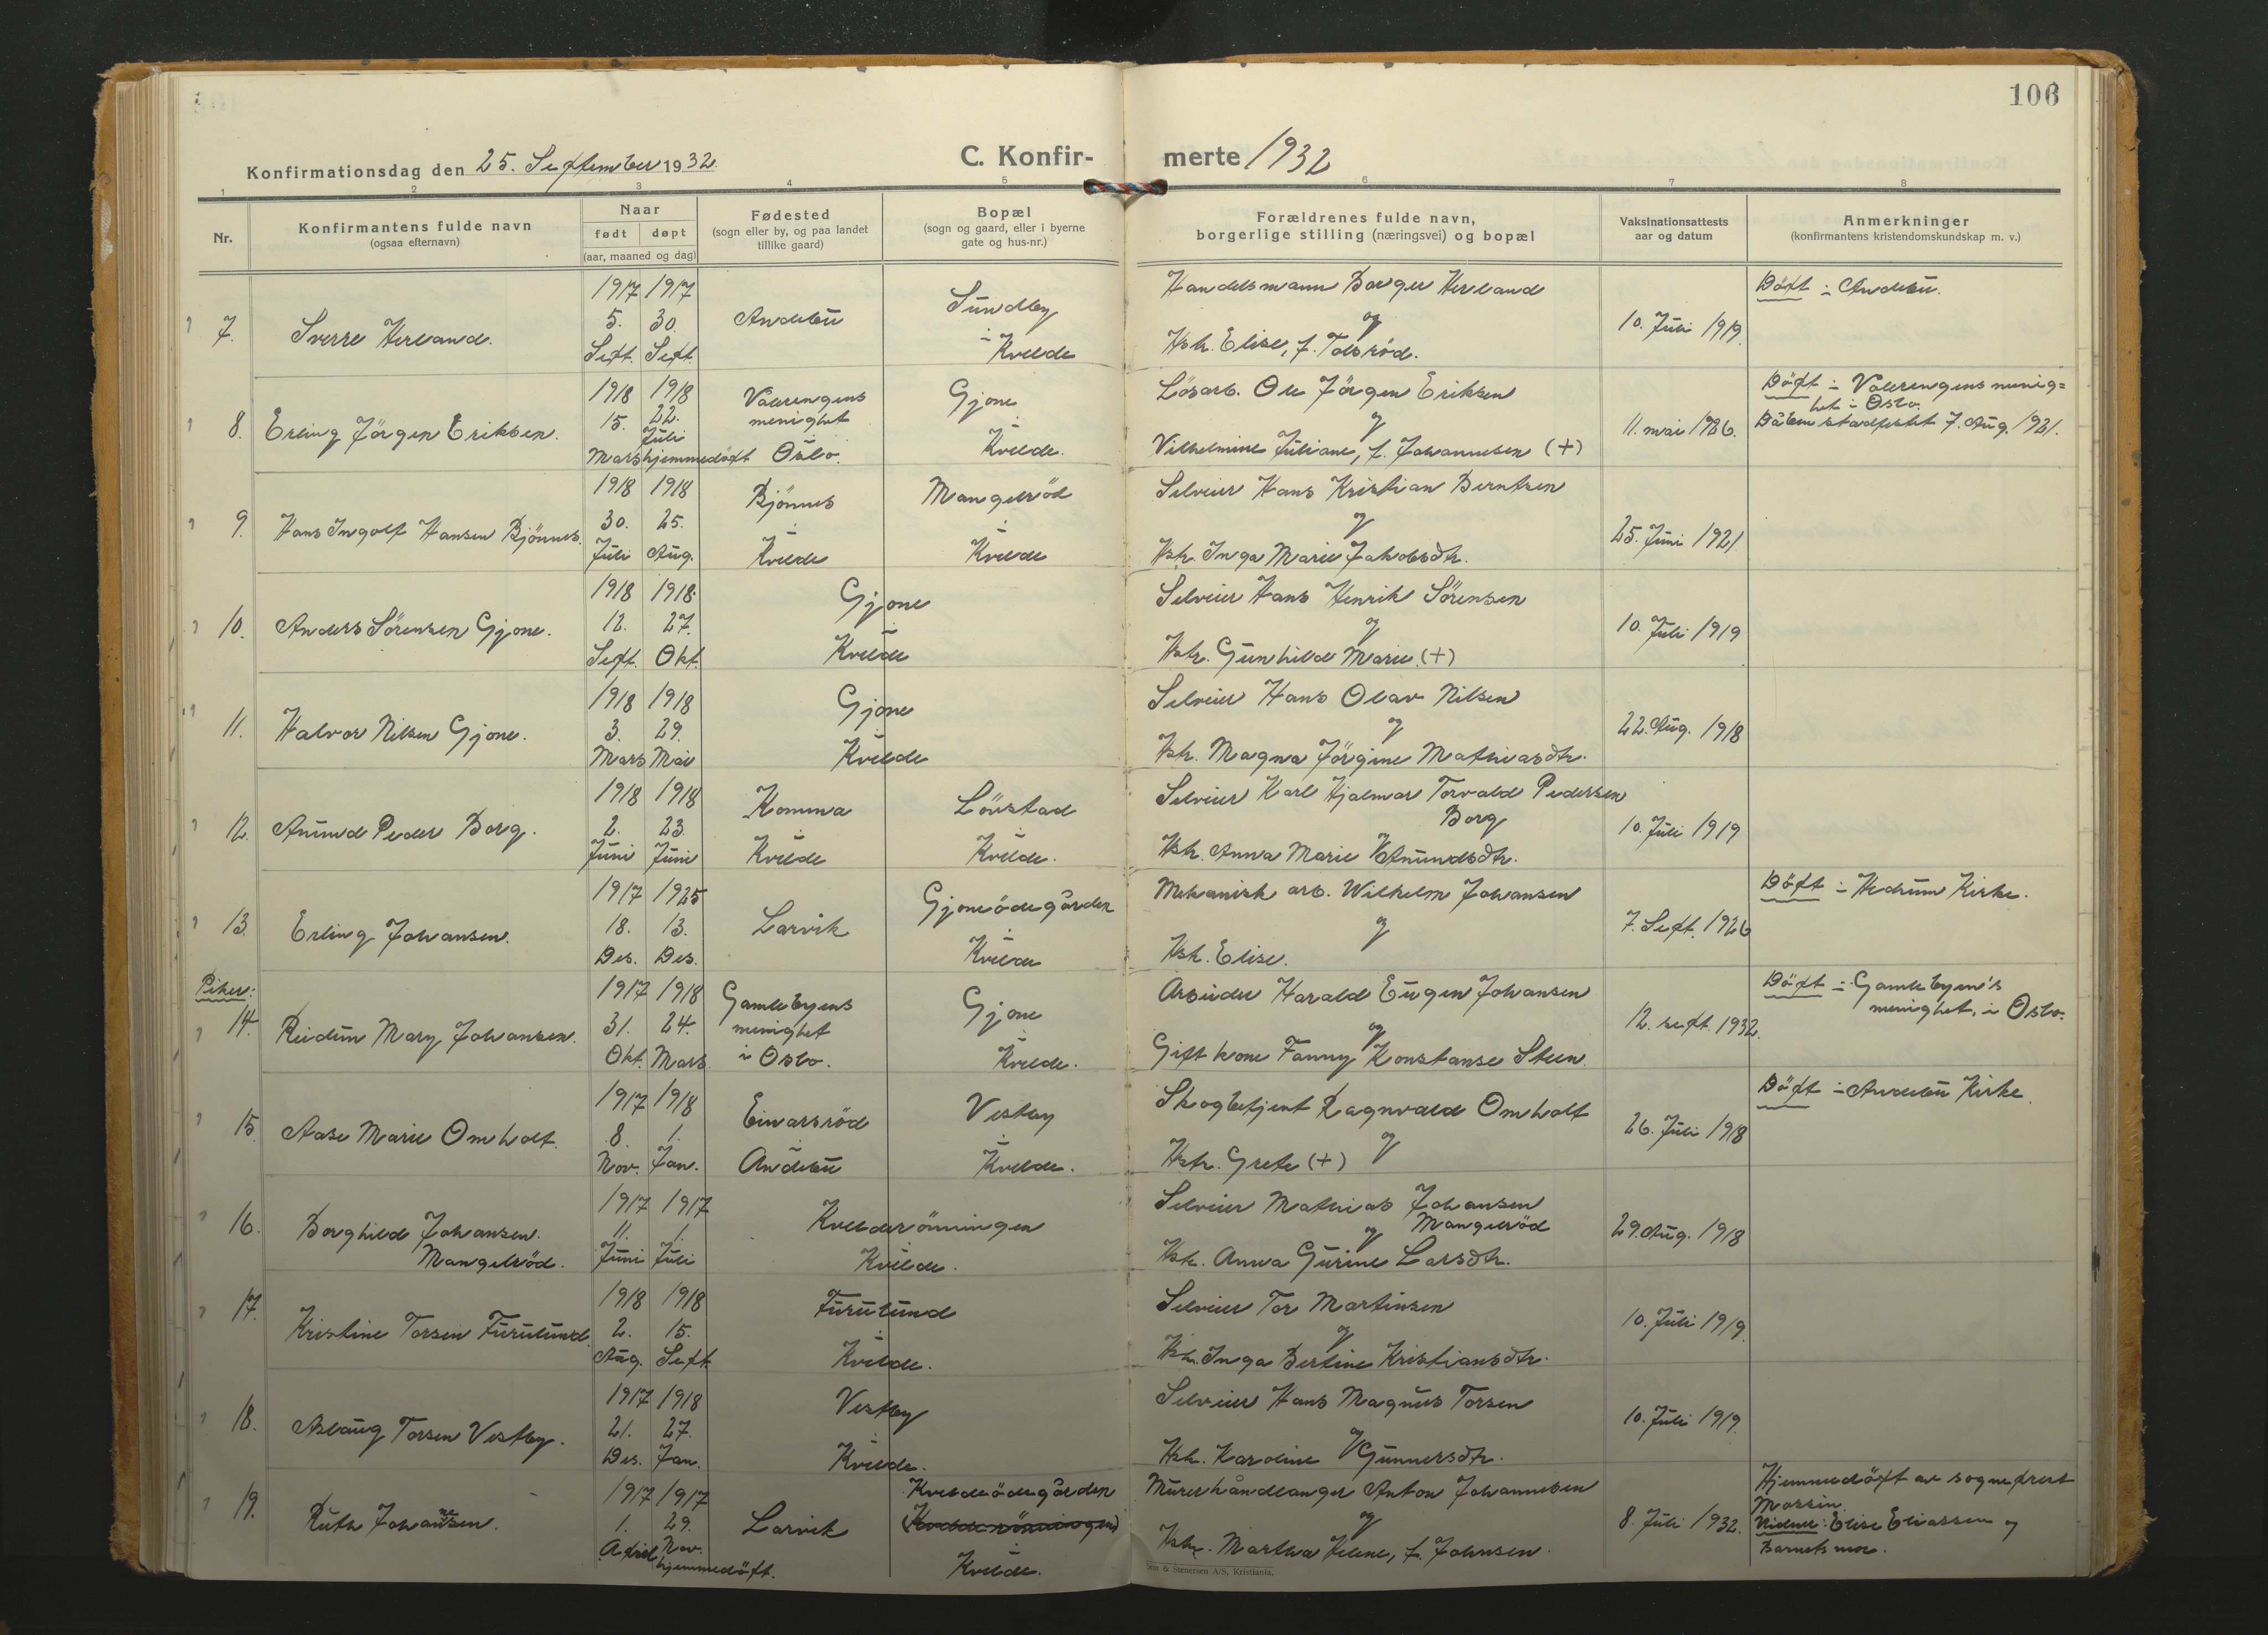 106
Konfirmationsdag den 25. September 1932.
C. Konfir- merte 1932
1 2 3 4 5 6 7 8
Nr.
Konfirmantens fulde navn
(ogsaa efternavn)
Naar
født døpt
(aar, maaned og dag)
Fødested
(sogn eller by, og paa landet
tillike gaard)
Bopæl
(sogn og gaard, eller i byerne
gate og hus-nr.)
Forældrenes fulde navn,
borgerlige stilling (næringsvei) og bopæl
Vaksinationsattests
aar og datum
Anmerkninger
(konfirmantens kristendomskundskap m. v.)
7. Sverre Herland.
1917 1917
5. 30.
Sept. Sept.
Andebu
Sundby
i Kvelde
Handelsmann Borger Herland
og
Hstr. Elise, f. Tolsrød.
10. Juli 1919.
Döpt i Andebu.
8. Erling Jörgen Eriksen.
1918 1918
15. 22.
Juli
Mars hjemmedöpt
Valerengens
menighet
Oslo.
Gjone
i
Kvelde.
Lösarb. Ole Jörgen Eriksen
og
Vilhelmine Juliane, f. Johannesen (+)
11. mai 1926.
Döpt i Valerengens menig=
het i Oslo.
Dåben stadfestet 7. Aug. 1921.
9. Hans Ingolf Hansen Bjönnes.
1918 1918
30. 25.
Juli Aug.
Bjönnes
i
Kvelde
Mangelröd
i
Kvelde
Selveier Hans Kristian Berntsen
og
Hstr. Inga Marie Jakobsdtr.
25. Juni 1921.
10. Anders Sörensen Gjone.
1918 1918.
12. 27.
Sept. Okt.
Gjone
i
Kvelde
Selveier Hans Henrik Sörensen
og
Hstr. Gunhild Marie (+)
10. Juli 1919
11. Halvor Nilsen Gjone.
1918 1918
3. 29.
Mars Mai
Gjone
i
Kvelde
Selveier Hans Olav Nilsen
og
Hstr. Magna Jörgine Mathiasdtr.
22. Aug. 1918
12. Anund Peder Borg.
1918 1918
2. 23.
Juni Juni
Komma
i
Kvelde
Lövstad
i
Kvelde.
Selveier Karl Hjalmar Torvald Pedersen
Borg
og
Hstr. Anna Marie Anundsdtr.
10. Juli 1919
13. Erling Johansen.
1917 1925
18. 13.
Des. Des.
Larvik
Gjoneödegården
i
Kvelde
Mekanisk arb. Wilhelm Johansen
og
Hstr. Elise.
7. Sept. 1926
Döpt i Hedrum Kirke.
Piker:
14. Reidun Mary Johansen.
1917 1918
31. 24.
Okt. Mars
Gamlebyens
menighet
i Oslo.
Gjone
i
Kvelde.
Arbeider Harald Eugen Johansen
og
Gift kone Fanny Konstanse Steen.
12. sept. 1932.
Döpt i Gamlebyen's
menighet, i Oslo.
15. Aase Marie Omholt.
1917 1918
8. 1.
Nov. Jan.
Einarsröd
i
Andebu
Vestby
i
Kvelde.
Skogbetjent Ragnvald Omholt
og
Hstr. Grete (+)
26. Juli 1918
Döpt i Andebu Kirke.
16. Borghild Johansen.
Mangelröd.
1917 1917
11. 1.
Juni Juli
Kvelderönningen
i
Kvelde.
Selveier Mathias Johansen
Mangelröd
og
Hstr. Anna Gurine Larsdtr.
29. Aug. 1918
17. Kristine Torsen Furulund.
1918 1918
2. 15.
Aug. Sept.
Furulund
i
Kvelde.
Selveier Tor Martinsen
og
Hstr. Inga Bertine Kristiansdtr.
10. Juli 1919.
18. Aslaug Torsen Vestby.
1917 1918
21. 27.
Des. Jan.
Vestby
i
Kvelde.
Selveier Hans Magnus Torsen
og
Hstr. Karoline Gunnersdtr.
10. Juli 1919.
19. Ruth Johannesen.
1917 1917
1. 29.
April Nov.
hjemmedöpt.
Larvik
Kveldeödegården
(Kvelderönningen)
i
Kvelde.
Murerhåndlanger Anton Johannesen
og
Hstr. Martha Helene, f. Johnsen.
8. Juli 1932.
Hjemmedöpt av sogneprest
Massin.
Vidner: Elise Eliassen og
Barnets mor.
& Stenersen A/S, Kristiania.